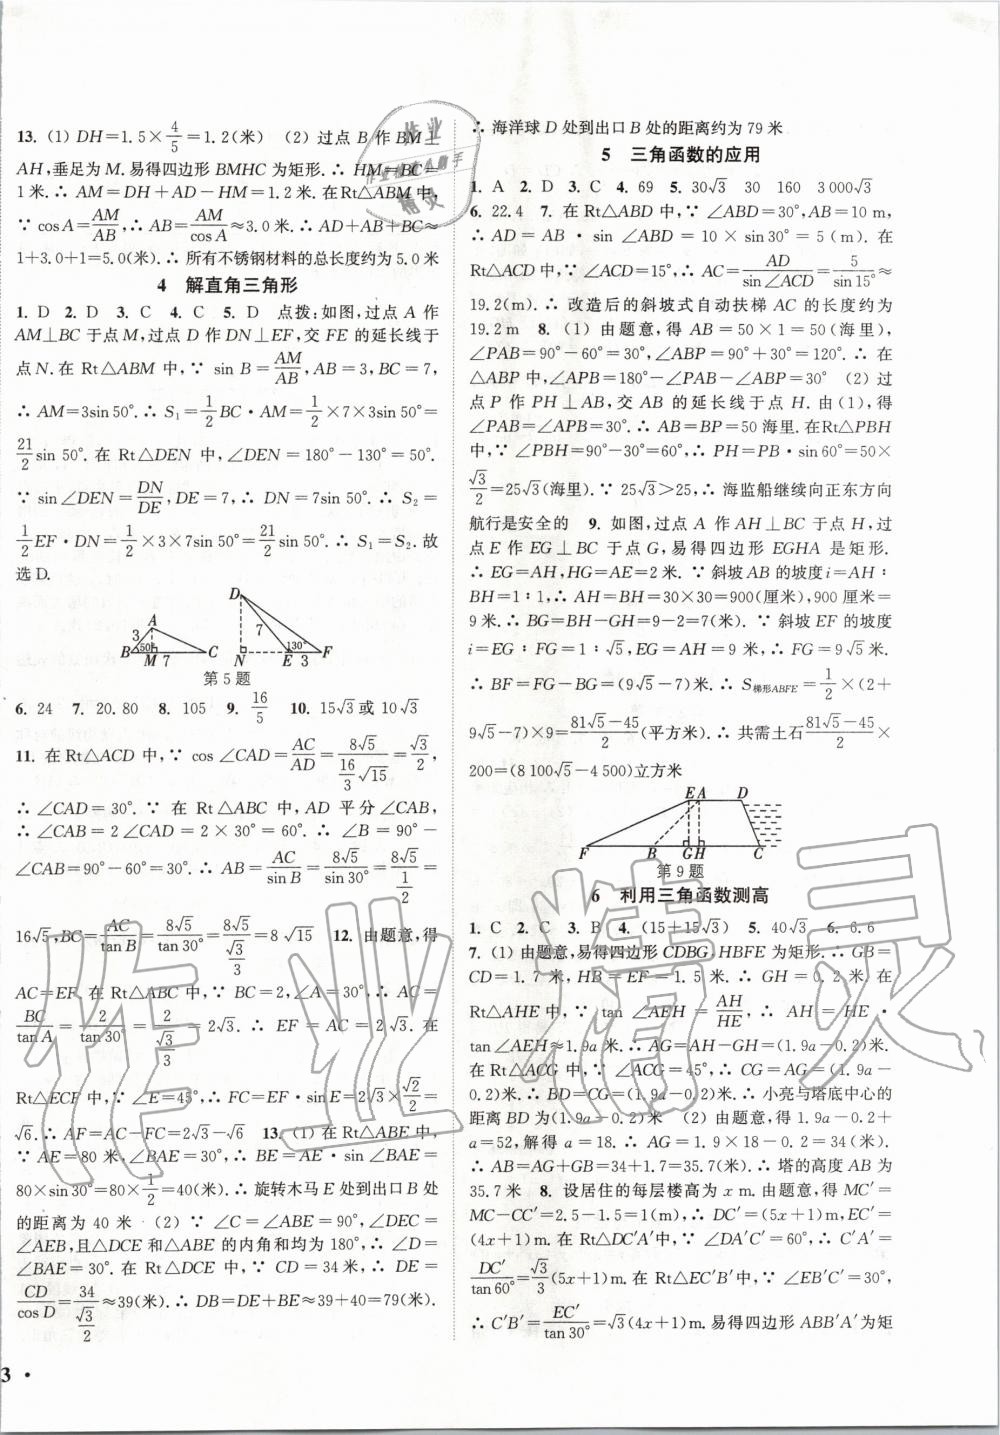 13. (1) DH=1.5×4/5=1.2(米) (2) 过点 B 作 BM⊥
AH,垂足为 M. 易得四边形 BMHC 为矩形. ∴ HM=BC=
1 米. ∴ AM=DH+AD-HM=1.2 米. 在 Rt△ABM 中,
∵ cos A=AM/AB, ∴ AB=AM/cos A≈3.0 米. ∴ AD+AB+BC≈
1+3.0+1=5.0(米). ∴ 所有不锈钢材料的总长度约为 5.0 米
4 解直角三角形
1. D 2. D 3. C 4. C 5. D 点拨:如图,过点 A 作
AM⊥BC 于点 M,过点 D 作 DN⊥EF,交 FE 的延长线于
点 N. 在 Rt△ABM 中,∵ sin B=AM/AB, AB=3, BC=7,
∴ AM=3sin 50°. ∴ S₁=1/2 BC·AM=1/2×7×3sin 50°=
21/2 sin 50°. 在 Rt△DEN 中,∠DEN=180°-130°=50°.
∵ sin∠DEN=DN/DE, DE=7, ∴ DN=7sin 50°. ∴ S₂=
1/2 EF·DN=1/2×3×7sin 50°=21/2 sin 50°. ∴ S₁=S₂. 故
选 D.
A 3 50° B M 7 C
D 7 130° N E 3 F
第 5 题
6. 24 7. 20.80 8. 105 9. 16/5 10. 15√3 或 10√3
11. 在 Rt△ACD 中,∵ cos∠CAD=AC/AD=8√5/(16/3 √15)=√3/2,
∴ ∠CAD=30°. ∵ 在 Rt△ABC 中,AD 平分∠CAB,
∴ ∠CAB=2∠CAD=2×30°=60°. ∴ ∠B=90°-
∠CAB=90°-60°=30°. ∴ AB=AC/sin B=8√5/sin 30°=8√5/(1/2)=
16√5, BC=AC/tan B=8√5/tan 30°=8√5/(√3/3)=8√15 12. 由题意,得
AC=EF. 在 Rt△ABC 中,∵ BC=2,∠A=30°,∴ AC=
BC/tan A=2/tan 30°=2/(√3/3)=2√3. ∴ EF=AC=2√3. ∴ 在
Rt△ECF 中,∵ ∠E=45°,∴ FC=EF·sin E=2√3×√2/2=
√6. ∴ AF=AC-FC=2√3-√6 13. (1) 在 Rt△ABE 中,
∵ AE=80 米,∠BAE=30°,∴ BE=AE·sin∠BAE=
80×sin 30°=80×1/2=40(米). ∴ 旋转木马 E 处到出口 B 处
的距离为 40 米 (2) ∵ ∠C=∠ABE=90°,∠DEC=
∠AEB,且△DCE 和△ABE 的内角和均为 180°,∴ ∠D=
∠BAE=30°. 在 Rt△DCE 中,∵ CD=34 米,∴ DE=
CD/cos D=34/(√3/2)≈39(米). ∴ DB=DE+BE≈39+40=79(米).
3 ·
∴ 海洋球 D 处到出口 B 处的距离约为 79 米
5 三角函数的应用
1. A 2. D 3. C 4. 69 5. 30√3 30 160 3 000√3
6. 22.4 7. 在 Rt△ABD 中,∵ ∠ABD=30°, AB=10 m,
∴ AD=AB·sin∠ABD=10×sin 30°=5(m). 在
Rt△ACD 中,∵ ∠ACD=15°,∴ AC=AD/sin∠ACD=5/sin 15°≈
19.2(m). ∴ 改造后的斜坡式自动扶梯 AC 的长度约为
19.2 m 8. (1) 由题意,得 AB=50×1=50(海里),
∠PAB=90°-60°=30°,∠ABP=90°+30°=120°. ∴ 在
△ABP 中,∠APB=180°-∠PAB-∠ABP=30° (2) 过
点 P 作 PH⊥AB,交 AB 的延长线于点 H. 由(1),得
∠PAB=∠APB=30°. ∴ AB=BP=50 海里. 在 Rt△PBH
中,∵ ∠PBH=90°-30°=60°,∴ PH=PB·sin 60°=50×
√3/2=25√3(海里). ∵ 25√3>25,∴ 海监船继续向正东方向
航行是安全的 9. 如图,过点 A 作 AH⊥BC 于点 H,过
点 E 作 EG⊥BC 于点 G,易得四边形 EGHA 是矩形.
∴ EG=AH, HG=AE=2 米. ∵ 斜坡 AB 的坡度 i=AH∶
BH=1∶1,∴ AH=BH=30×30=900(厘米),900 厘米=
9 米. ∴ BG=BH-GH=9-2=7(米). ∵ 斜坡 EF 的坡度
i=EG∶FG=1∶√5, EG=AH=9 米,∴ FG=9√5 米.
∴ BF=FG-BG=(9√5-7)米. ∴ S梯形ABFE=1/2×(2+
9√5-7)×9=(81√5-45)/2(平方米). ∴ 共需土石(81√5-45)/2×
200=(8 100√5-4 500)立方米
E A D F B G H C
第 9 题
6 利用三角函数测高
1. C 2. C 3. B 4. (15+15√3) 5. 40√3 6. 6.6
7. (1) 由题意,易得四边形 CDBG, HBFE 为矩形. ∴ GB=
CD=1.7 米, HB=EF=1.5 米. ∴ GH=0.2 米. 在
Rt△AHE 中,∵ tan∠AEH=AH/HE, ∴ AH=HE·
tan∠AEH≈1.9a 米. ∴ AG=AH-GH=(1.9a-0.2)米.
在 Rt△ACG 中,∵ ∠ACG=45°,∴ CG=AG=(1.9a-
0.2)米. ∴ BD=CG=(1.9a-0.2)米. ∴ 小亮与塔底中心的
距离 BD 为(1.9a-0.2)米 (2) 由题意,得 1.9a-0.2+
a=52,解得 a=18. ∴ AG=1.9×18-0.2=34(米).
∴ AB=AG+GB=34+1.7=35.7(米). ∴ 塔的高度 AB 为
35.7 米 8. 设居住的每层楼高为 x m. 由题意,得 MC′=
MC-CC′=2.5-1.5=1(m),∴ DC′=(5x+1)m, EC′=
(4x+1)m. 在 Rt△DC′A′中,∵ ∠DA′C′=60°,∴ C′A′=
DC′/tan 60°=√3/3(5x+1)m. 在 Rt△EC′B′中,∵ ∠EB′C′=30°,
∴ C′B′=EC′/tan 30°=√3(4x+1)m. 易得四边形 ABB′A′为矩
作业精灵